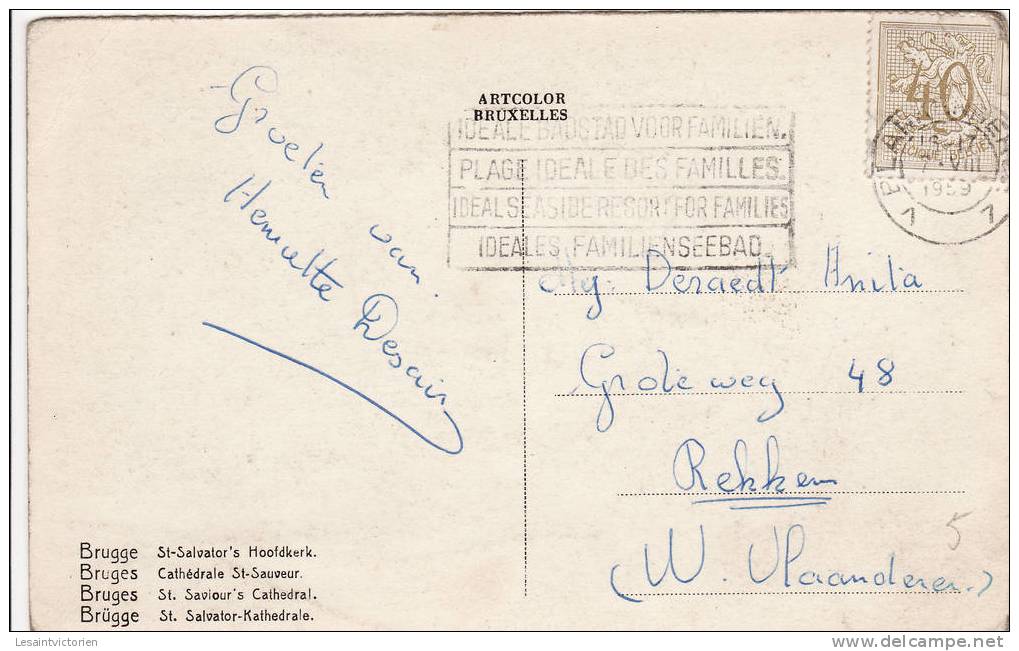 ARTCOLOR
BRUXELLES
IDEALE BADSTAD VOOR FAMILIEN.
PLAGE IDEALE DES FAMILLES.
IDEAL SEASIDE RESORT FOR FAMILIES
IDEALES FAMILIENSEEBAD
40
1959
1 1
Groeten van.
Henriette Desain
Mej. Deraedt Anita
Grote weg 48
Rekkem
(W. Vlaanderen)
5
Brugge St-Salvator's Hoofdkerk.
Bruges Cathédrale St-Sauveur.
Bruges St. Saviour's Cathedral.
Brügge St. Salvator-Kathedrale.
Lesaintvictorien
www.delcampe.net